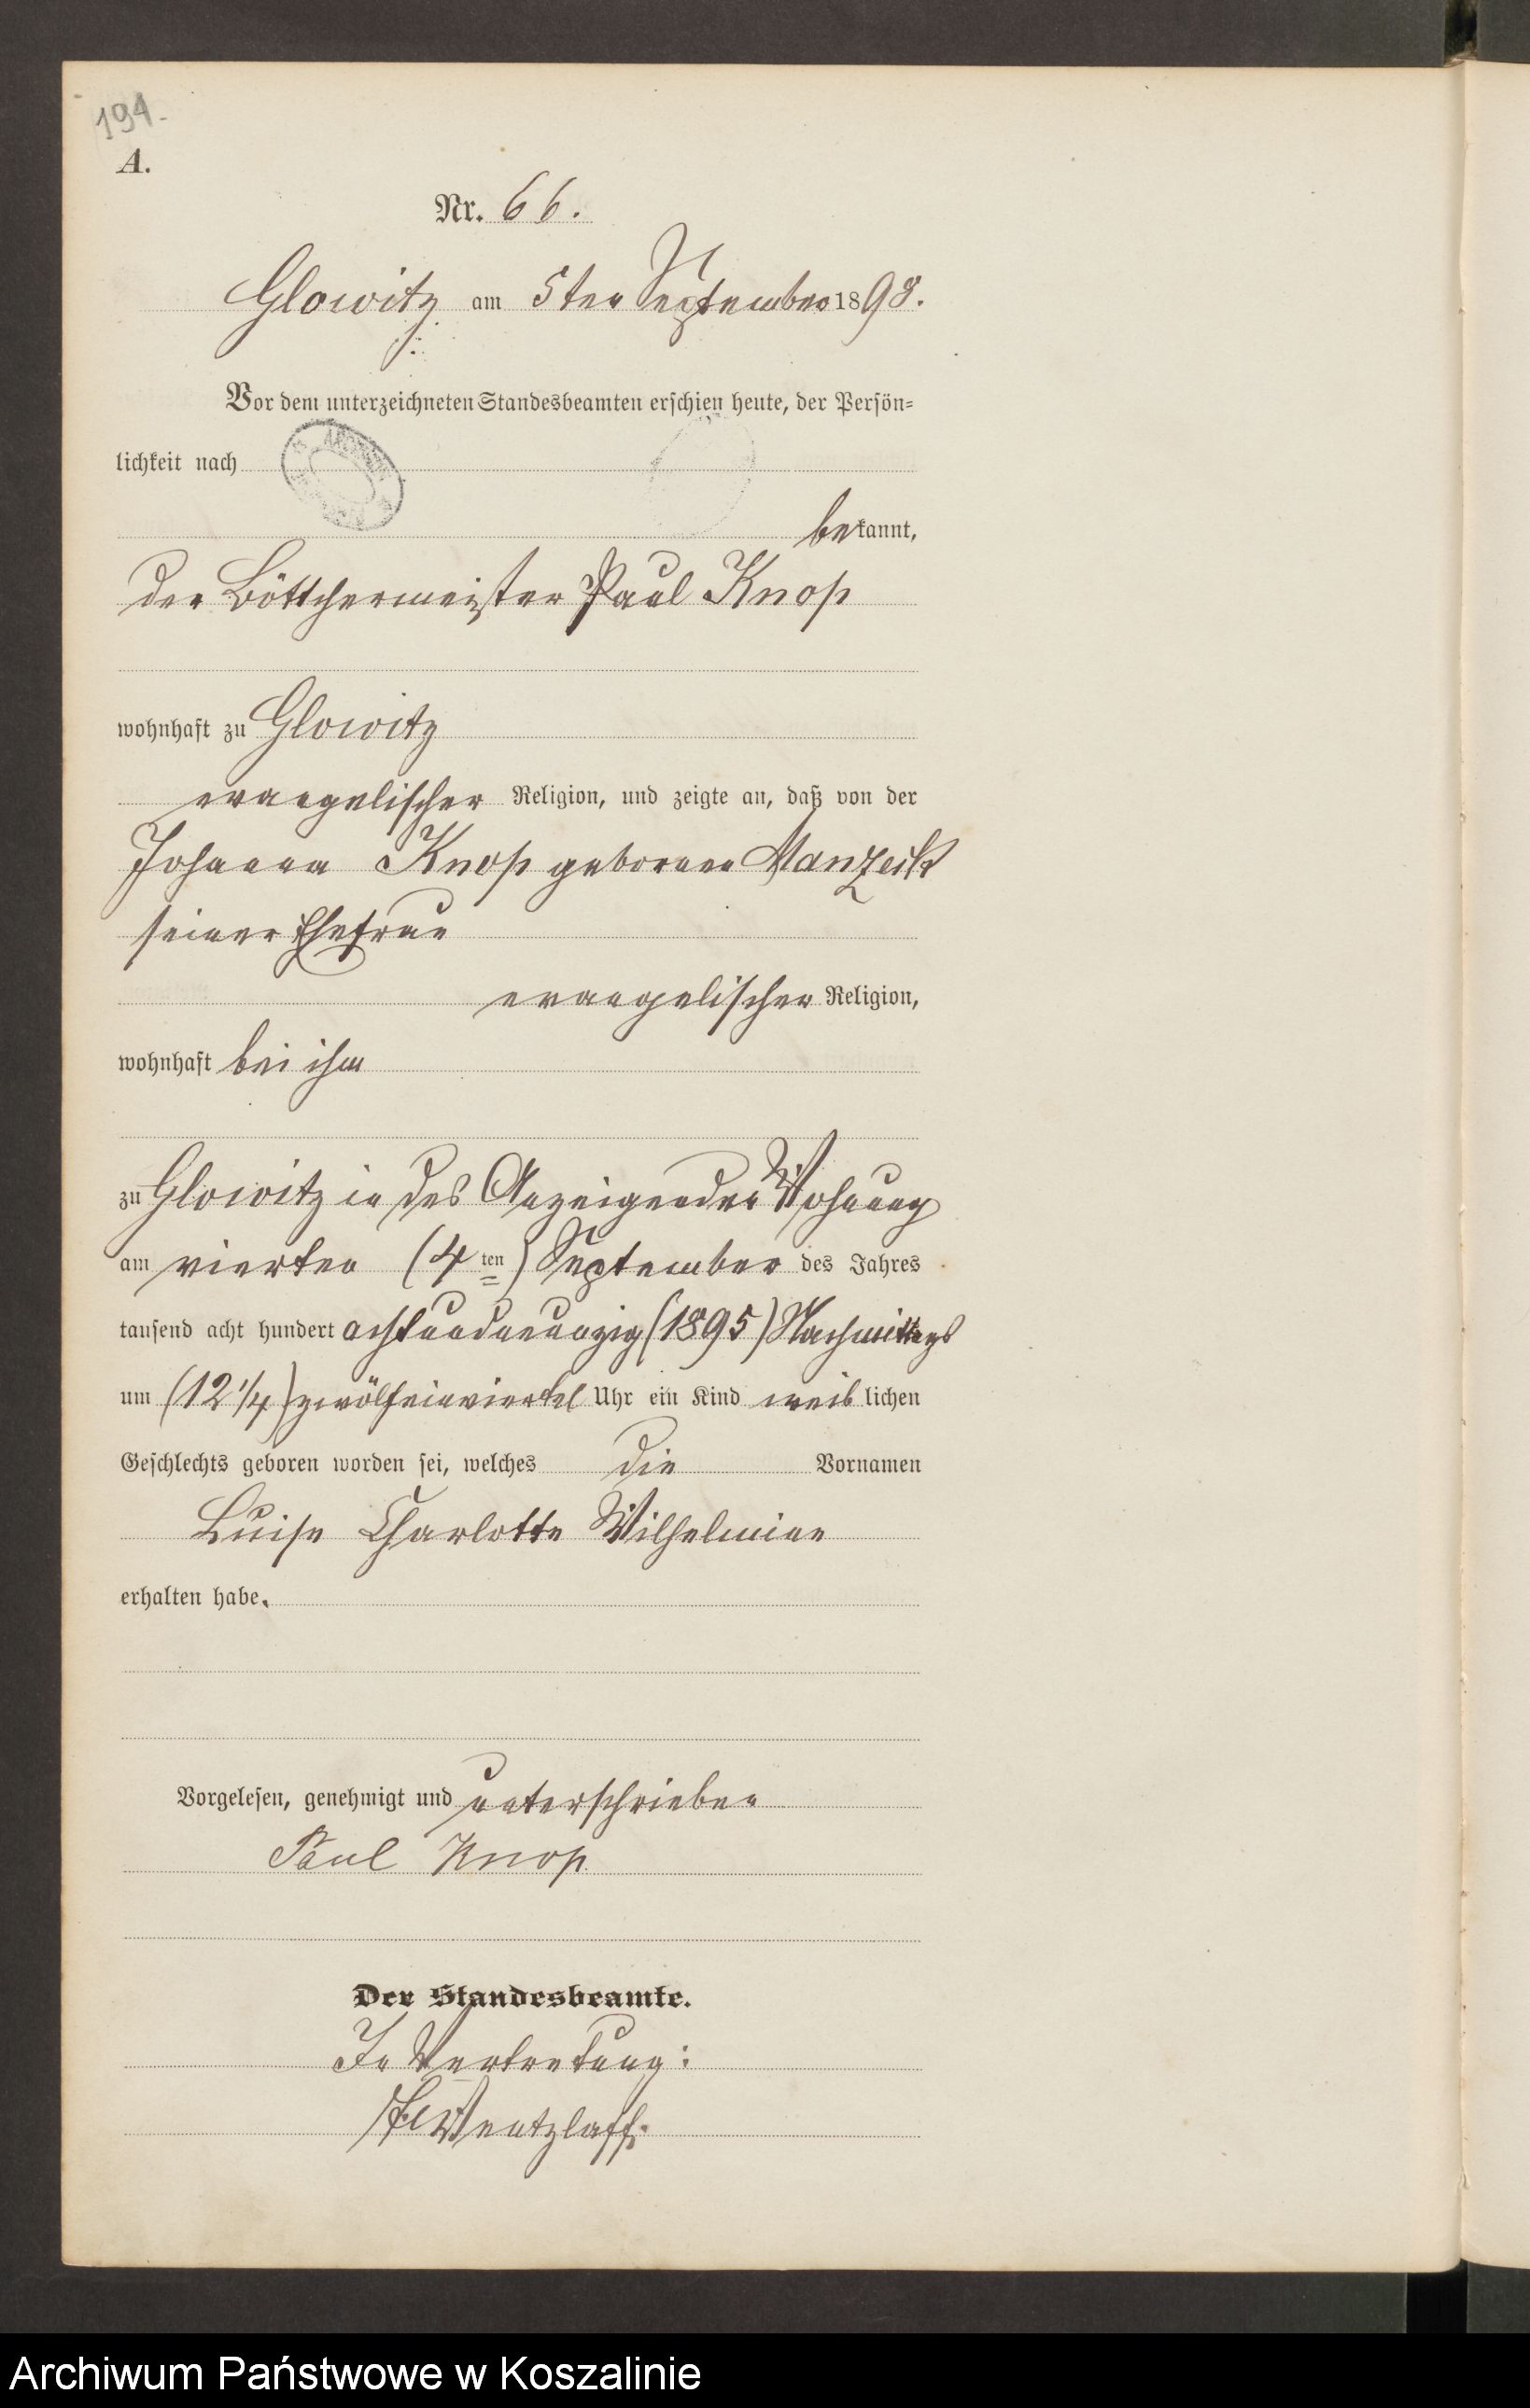 194.
A.
Nr. 66.
Glowitz am 5ten September 1898.
Vor dem unterzeichneten Standesbeamten erschien heute, der Persön=
lichkeit nach
bekannt,
der Böttchermeister Paul Knop
wohnhaft zu Glowitz
evangelischer Religion, und zeigte an, daß von der
Johanna Knop geborenen Manzeck
seiner Ehefrau
evangelischer Religion,
wohnhaft bei ihm
zu Glowitz in des Anzeigenden Wohnung
am vierten (4ten) September des Jahres
tausend acht hundert achtundneunzig (1895) Nachmittags
um (12 1/4) zwölfeinviertel Uhr ein Kind weiblichen
Geschlechts geboren worden sei, welches die Vornamen
Luise Charlotte Wilhelmine
erhalten habe.
Vorgelesen, genehmigt und unterschrieben
Paul Knop
Der Standesbeamte.
In Vertretung:
Wentzlaff.
Archiwum Państwowe w Koszalinie